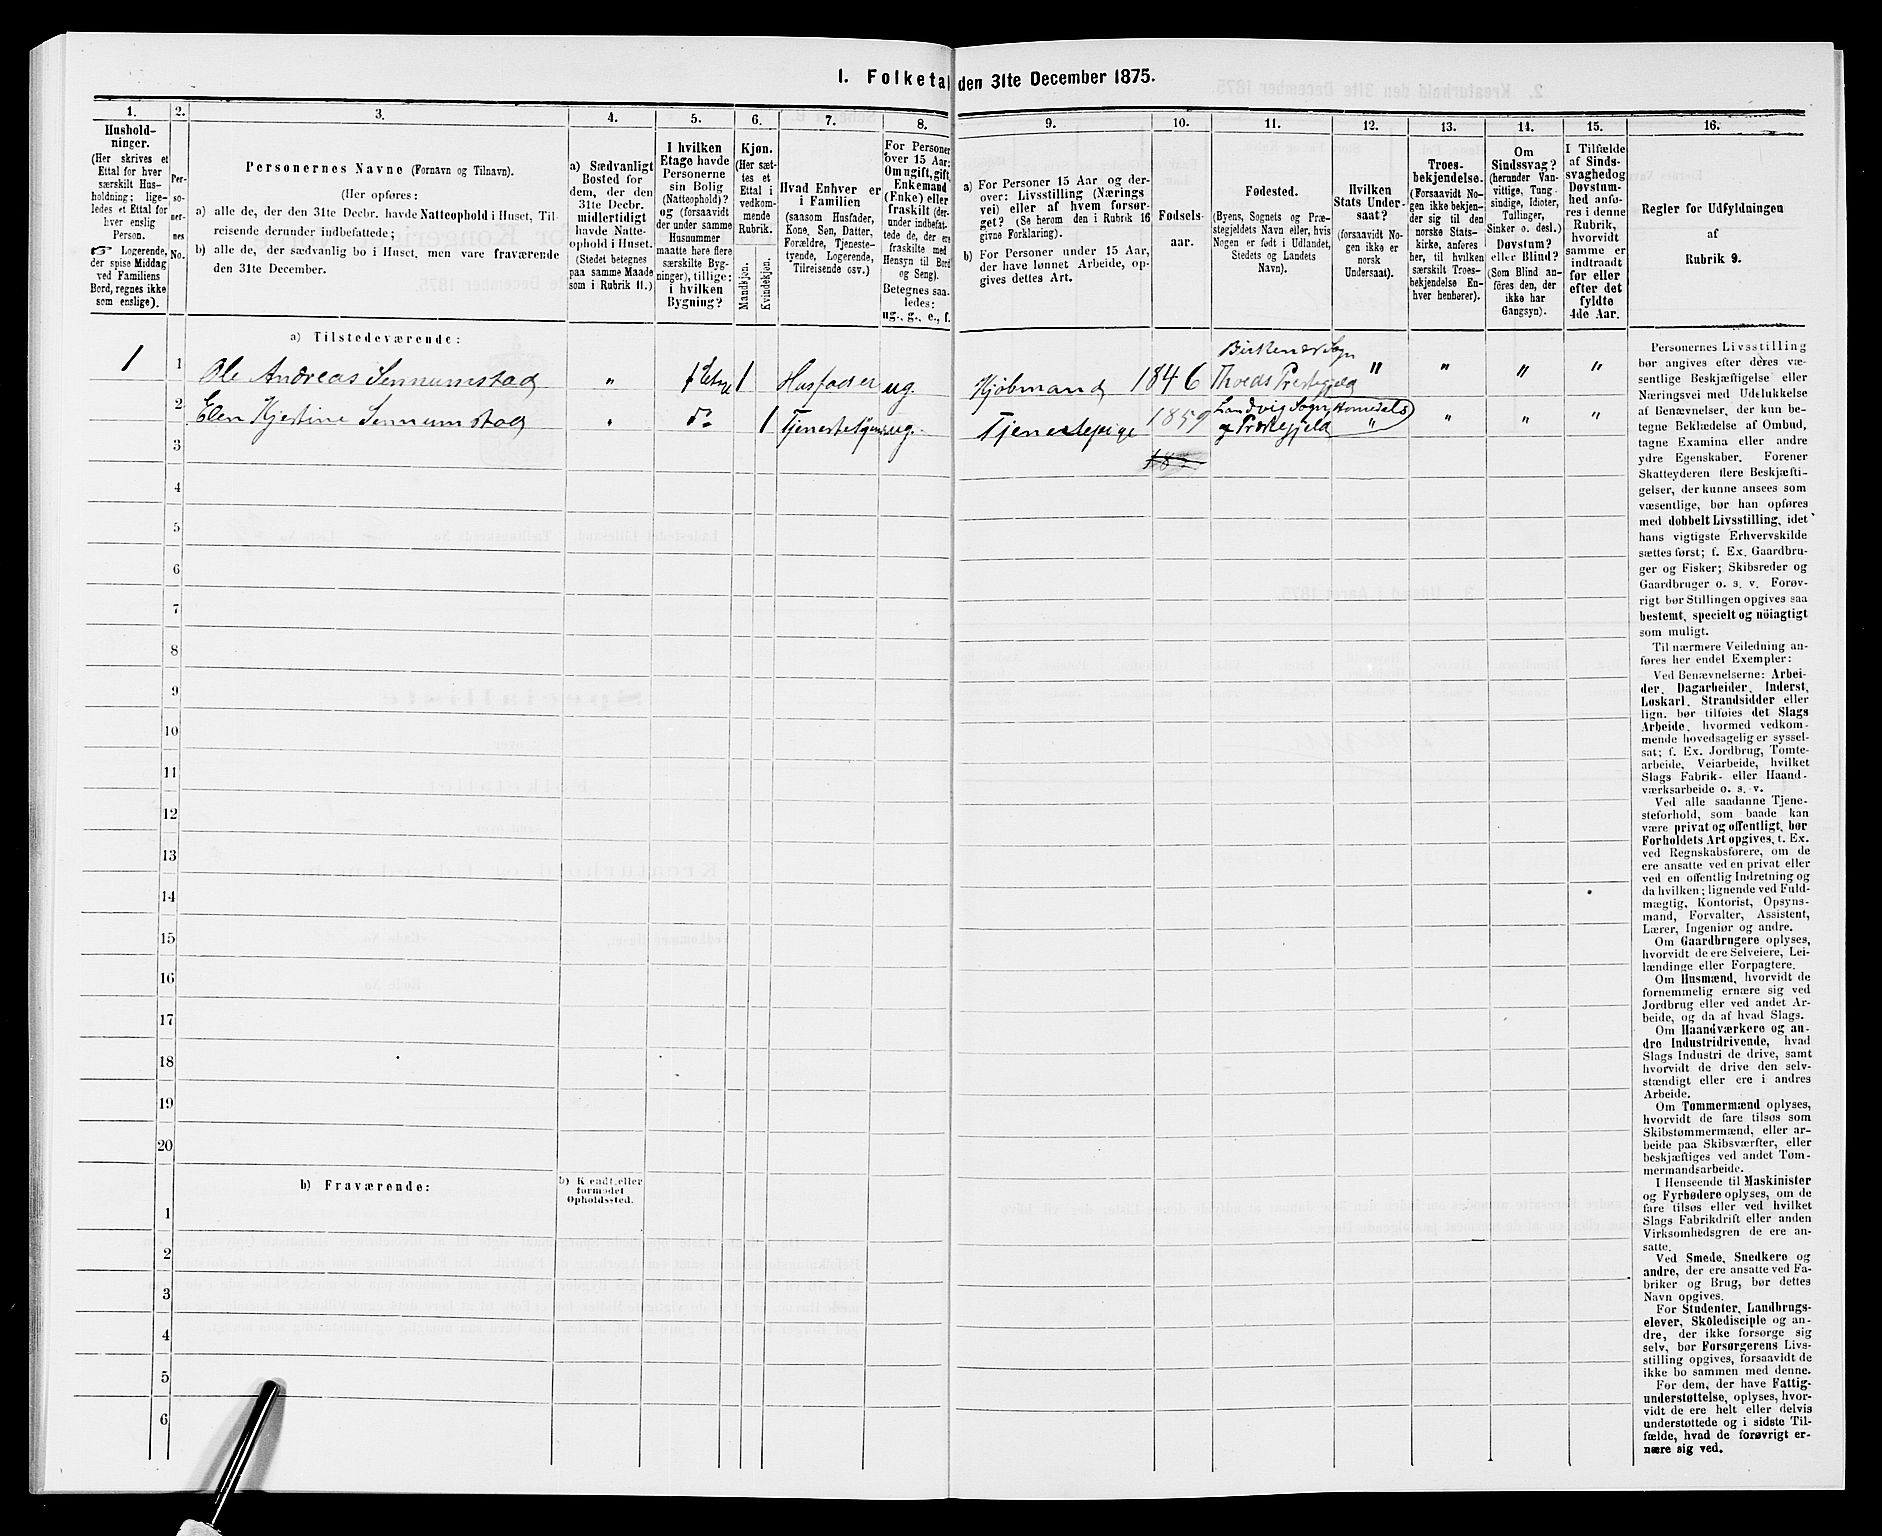 I. Folketal den 31te December 1875.
1.
Hushold-
ninger.
(Her skrives et
Ettal for hver
særskilt Hus-
holdning; lige-
ledes et Ettal for
hver enslig
Person.
☞ Logerende,
der spise Middag
ved Familiens
Bord, regnes ikke
som enslige).
2.
Per-
so-
ner-
nes
No.
3.
Personernes Navne (Fornavn og Tilnavn).
(Her opføres:
a) alle de, der den 31te Decbr. havde Natteophold i Huset, Til-
reisende derunder indbefattede;
b) alle de, der sædvanlig bo i Huset, men vare fraværende
den 31te December.
4.
a) Sædvanligt
Bosted for
dem, der den
31te Decbr.
midlertidigt
havde Natte-
ophold i Huset.
(Stedet betegnes
paa samme Maade
som i Rubrik 11.)
5.
I hvilken
Etage havde
Personerne
sin Bolig
(Natteophold)?
og (forsaavidt
der under samme
Husnummer
maatte høre flere
særskilte Byg-
ninger), tillige:
i hvilken
Bygning?
6.
Kjøn.
(Her sæt-
tes et
Ettal i
vedkom-
mende
Rubrik.)
Mandkjøn.
Kvindekjøn.
7.
Hvad Enhver er
i Familien
(saasom Husfader,
Kone, Søn, Datter,
Forældre, Tjeneste-
tyende, Logerende,
Tilreisende osv.)
8.
For Personer
over 15 Aar:
Om ugift, gift,
Enkemand
(Enke) eller
fraskilt (der-
under indbefat-
tede de, der ere
fraskilte med
Hensyn til Bord
og Seng).
Betegnes saa-
ledes:
ug., g., e., f.
9.
a) For Personer 15 Aar og der-
over: Livsstilling (Nærings
vei) eller af hvem forsør-
get? (Se herom den i Rubrik 16
givne Forklaring).
b) For Personer under 15 Aar,
der have lønnet Arbeide, op-
gives dettes Art.
10.
Fødsels-
aar.
11.
Fødested.
(Byens, Sognets og Præ-
stegjeldets Navn eller, hvis
Nogen er født i Udlandet,
Stedets og Landets
Navn).
12.
Hvilken
Stats Under-
saat?
(forsaavidt No-
gen ikke er
norsk
Undersaat).
13.
Troes-
bekjendelse.
(Forsaavidt No-
gen ikke bekjen-
der sig til den
norske Stats-
kirke, anføres
her, til hvilken
særskilt Troes-
bekjendelse En-
hver henhører).
14.
Om
Sindssvag?
(herunder Van-
vittige, Tung-
sindige, Idioter,
Tullinger,
Sinker o. desl.)
Døvstum?
eller Blind?
(Som Blind an-
føres den, der
ikke har
Gangsyn).
15.
I Tilfælde
af Sinds-
svaghed og
Døvstum-
hed anfø-
res i denne
Rubrik,
hvorvidt
samme er
indtraadt
før eller
efter det
fyldte
4de Aar.
16.
Regler for Udfyldningen
af
Rubrik 9.
a) Tilstedeværende:
1 1 Ole Andreas Sennumstad „ 1 Etage 1 Husfader ug. Kjøbmand 1846 Birkenæs Sogn Thveds Prestegjeld „ „ „ „
2 Elen Kjerstine Sennumstad „ do 1 Tjenestepige ug. Tjenestepige 1859 Landvig Sogn Homedals Præstegjeld „ „ „ „
3 187
4
5
6
7
8
9
10
11
12
13
14
15
16
17
18
19
20
b) Fraværende:
b) Kjendt eller
formodet
Opholdssted.
1
2
3
4
5
6
Personernes Livsstilling
bør angives efter deres væ-
sentlige Beskjæftigelse eller
Næringsvei med Udelukkelse
af Benævnelser, der kun be-
tegne Beklædelse af Ombud,
tagne Examina eller andre
ydre Egenskaber. Forener
Skatteyderen flere Beskjæfti-
gelser, der kunne ansees som
væsentlige, bør han opføres
med dobbelt Livsstilling, idet
hans vigtigste Erhvervskilde
sættes først; f. Ex. Gaardbru-
ger og Fisker; Skibsreder og
Gaardbruger o. s. v. Forøv-
rigt bør Stillingen opgives saa
bestemt, specielt og nöiagtigt
som muligt.
Til nærmere Veiledning an-
føres her endel Exempler:
Ved Benævnelserne: Arbei-
der, Dagarbeider, Inderst,
Løskarl, Strandsidder eller
lign. bør tilføies det Slags
Arbeide, hvormed vedkom-
mende hovedsagelig er syssel-
sat; f. Ex. Jordbrug, Tomte-
arbeide, Veiarbeide, hvilket
Slags Fabrik- eller Haand-
værksarbeide o. s. v.
Ved alle saadanne Tjene-
steforhold, som baade kan
være privat og offentligt, bør
Forholdets Art opgives, t. Ex.
ved Regnskabsførere, om de
ere ansatte ved en privat eller
ved en offentlig Indretning og
da hvilken; lignende ved Fuld-
mægtig, Kontorist, Opsyns-
mand, Forvalter, Assistent,
Lærer, Ingeniør og andre.
Om Gaardbrugere oplyses,
hvorvidt de ere Selveiere, Lei-
lændinge eller Forpagtere.
Om Husmænd, hvorvidt de
fornemmelig ernære sig ved
Jordbrug eller ved andet Ar-
beide, og da af hvad Slags.
Om Haandværkere og an-
dre Industridrivende, hvad
Slags Industri de drive, samt
hvorvidt de drive den selv-
stændigt eller ere i andres
Arbeide.
Om Tømmermænd oplyses,
hvorvidt de fare tilsøs som
Skibstømmermænd, eller ar-
beide paa Skibsværfter, eller
beskjæftiges ved andet Tøm-
mermandsarbeide.
I Henseende til Maskinister
og Fyrbødere oplyses, om de
fare tilsøs eller ved hvilket
Slags Fabrikdrift eller anden
Virksomhedsgren de ere an-
satte.
Ved Smede, Snedkere og
andre, der ere ansatte ved Fa-
briker og Brug, bør dettes
Navn opgives.
For Studenter, Landbrugs-
elever, Skoledisciple og an-
dre, der ikke forsørge sig
selv, bør Forsørgerens Livs-
stilling opgives, forsaavidt de
ikke bo sammen med denne.
For dem, der have Fattig-
understøttelse, oplyses, hvor-
vidt de ere helt eller delvis
understøttede og i sidste Til-
fælde, hvad de forøvrigt er-
nære sig ved.